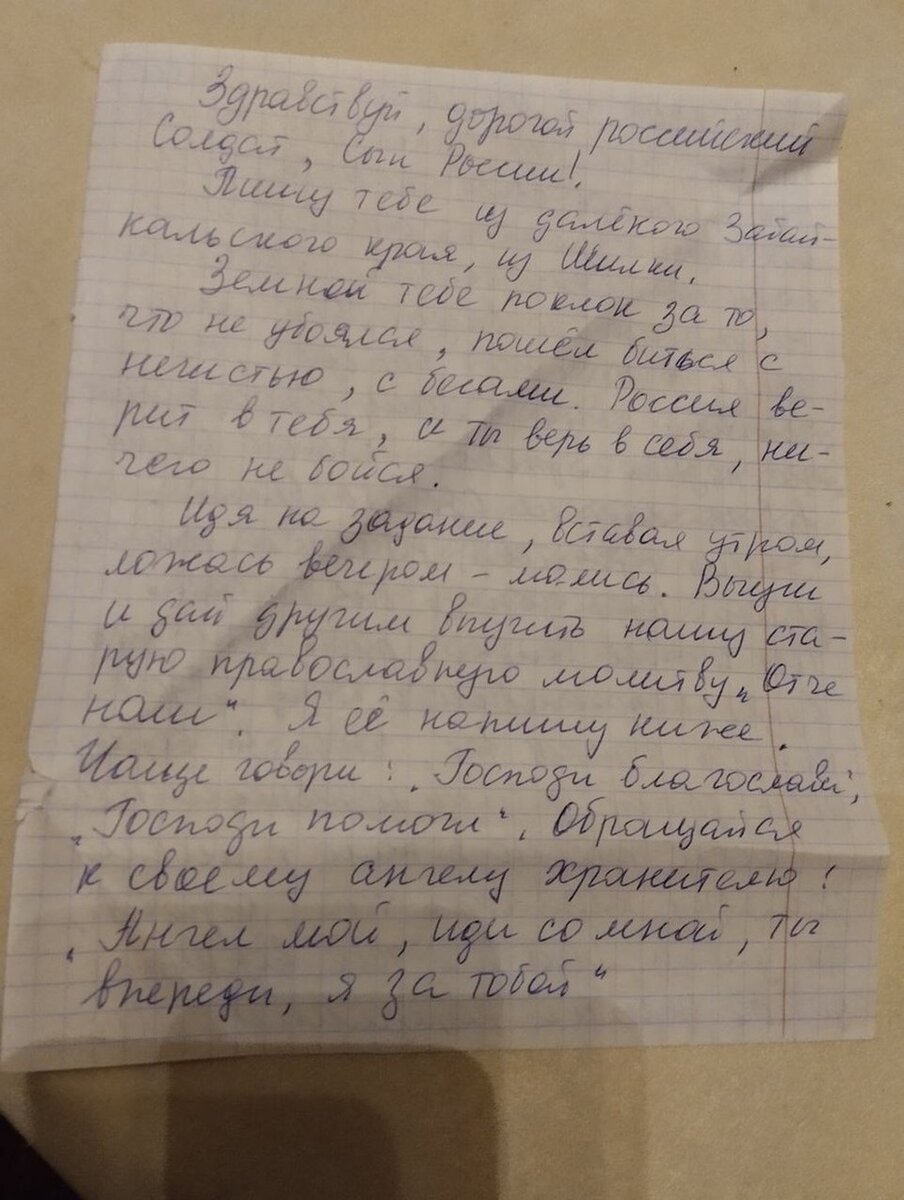 Здравствуй, дорогой российский
Солдат, Сын России!
Пишу тебе из далёкого Забай-
кальского края, из Шилки.
Земной тебе поклон за то,
что не убоялся, пошёл биться с
нечистью, с бесами. Россия ве-
рит в тебя, и ты верь в себя, ни-
чего не бойся.
Идя на задание, вставая утром,
ложась вечером - молись. Выучи
и дай другим выучить нашу ста-
рую православную молитву „Отче
наш“. Я её напишу ниже.
Чаще говори: „Господи благослави,
„Господи помоги“. Обращайся
к своему ангелу хранителю:
„Ангел мой, иди со мной, ты
впереди, я за тобой“